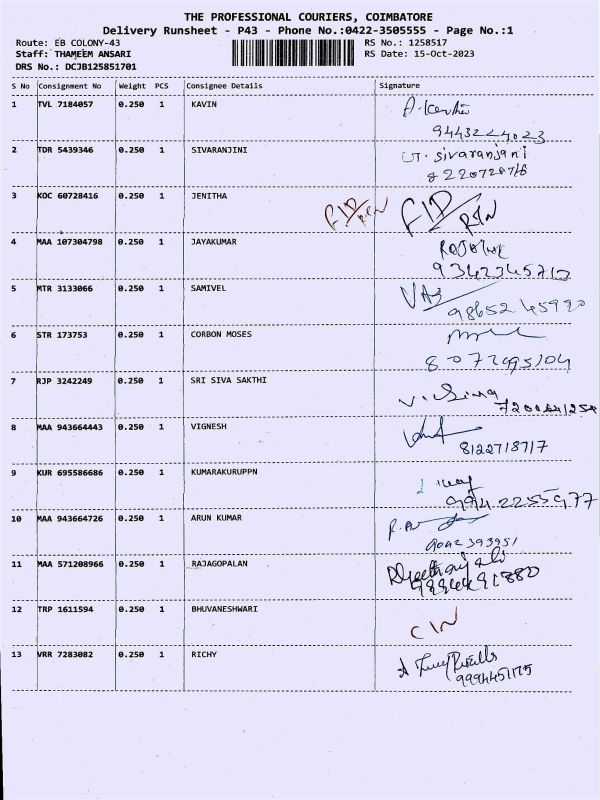 THE PROFESSIONAL COURIERS, COIMBATORE
Delivery Runsheet - P43 - Phone No.:0422-3505555 - Page No.:1
Route: EB COLONY-43 RS No.: 1258517
Staff: THAMEEM ANSARI RS Date: 15-Oct-2023
DRS No.: DCJB125851701
S No Consignment No Weight PCS Consignee Details Signature
1 TVL 7184057 0.250 1 KAVIN
9443224023
2 TDR 5439346 0.250 1 SIVARANJINI G. sivaranjani
8220720716
3 KOC 60728416 0.250 1 JENITHA
4 MAA 107304798 0.250 1 JAYAKUMAR
9342345713
5 MTR 3133066 0.250 1 SAMIVEL
9865245920
6 STR 173753 0.250 1 CORBON MOSES
8072495104
7 RJP 3242249 0.250 1 SRI SIVA SAKTHI
8 MAA 943664443 0.250 1 VIGNESH
8122718717
9 KUR 695586686 0.250 1 KUMARAKURUPPN
99942255977
10 MAA 943664726 0.250 1 ARUN KUMAR
11 MAA 571208966 0.250 1 RAJAGOPALAN
12 TRP 1611594 0.250 1 BHUVANESHWARI
13 VRR 7283082 0.250 1 RICHY
9994451175